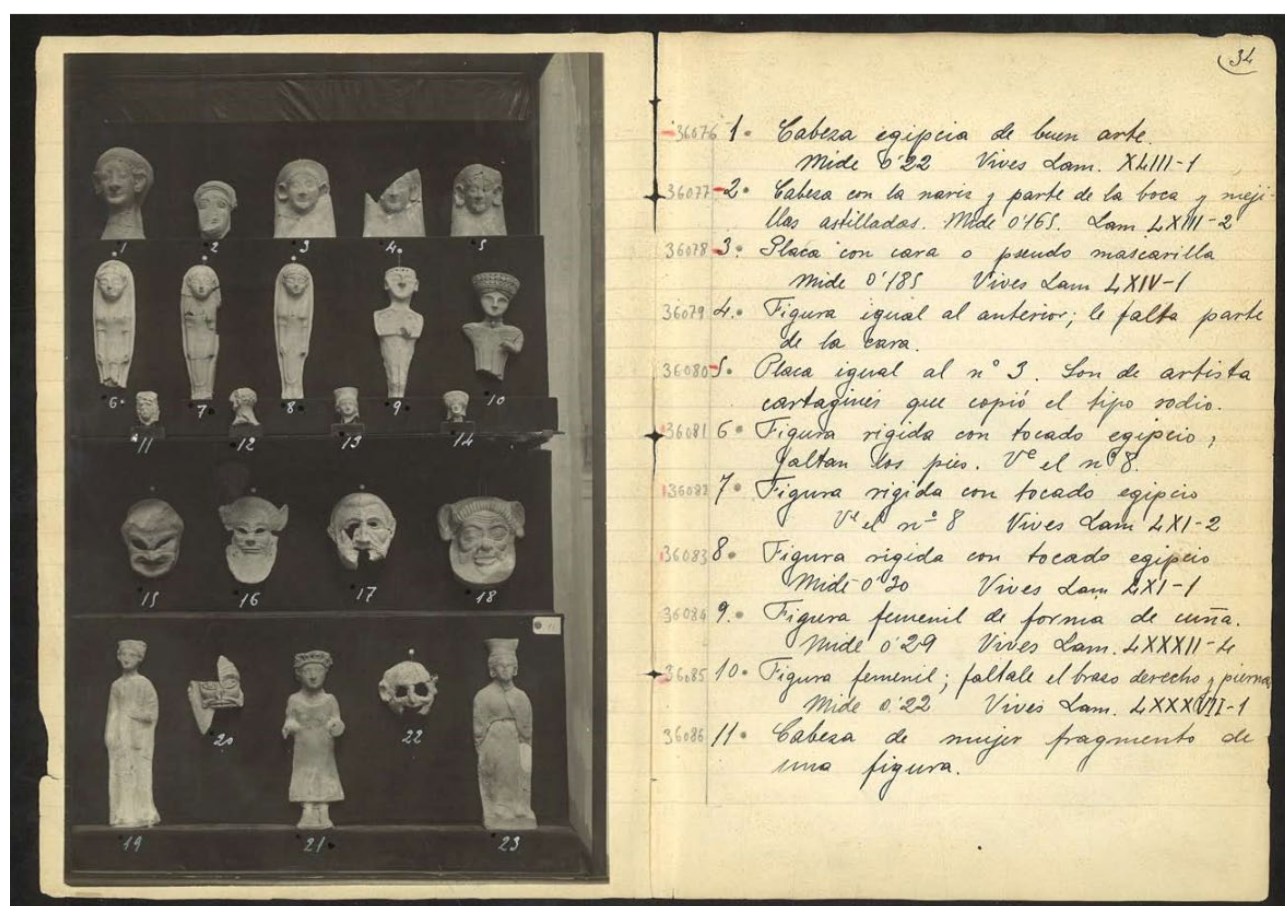 1 2 3 4 5
6 7 8 9 10
11 12 13 14
15 16 17 18
19 20 21 22 23
34
36076 1. Cabeza egipcia de buen arte.
Mide 0'22 Vives Lam. XLIII-1
36077 2. Cabeza con la nariz y parte de la boca y meji-
llas astilladas. Mide 0'165. Lam LXIII-2
36078 3. Placa con cara o pseudo mascarilla
Mide 0'185 Vives Lam LXIV-1
36079 4. Figura igual al anterior; le falta parte
de la cara.
36080 5. Placa igual al nº 3. Son de artista
cartaginés que copió el tipo rodio.
36081 6. Figura rigida con tocado egipcio,
faltan los pies. Vᵉ el nº 8.
36082 7. Figura rigida con tocado egipcio
Vᵉ el nº 8 Vives Lam LXI-2
36083 8. Figura rigida con tocado egipcio
Mide 0'30 Vives Lam LXI-1
36084 9. Figura femenil de forma de cuña.
Mide 0'29 Vives Lam. LXXXII-4
36085 10. Figura femenil; faltale el brazo derecho y piernas
Mide 0'22 Vives Lam. LXXXVII-1
36086 11. Cabeza de mujer fragmento de
una figura.